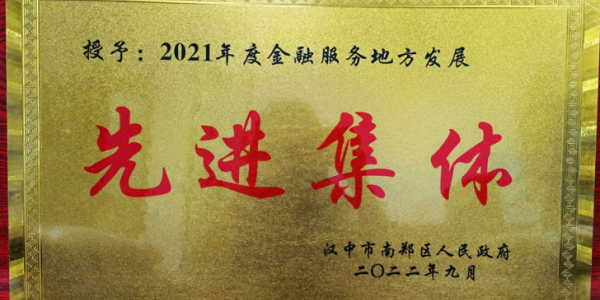 授予：2021年度金融服务地方发展
先进集体
汉中市南郑区人民政府
二〇二二年九月